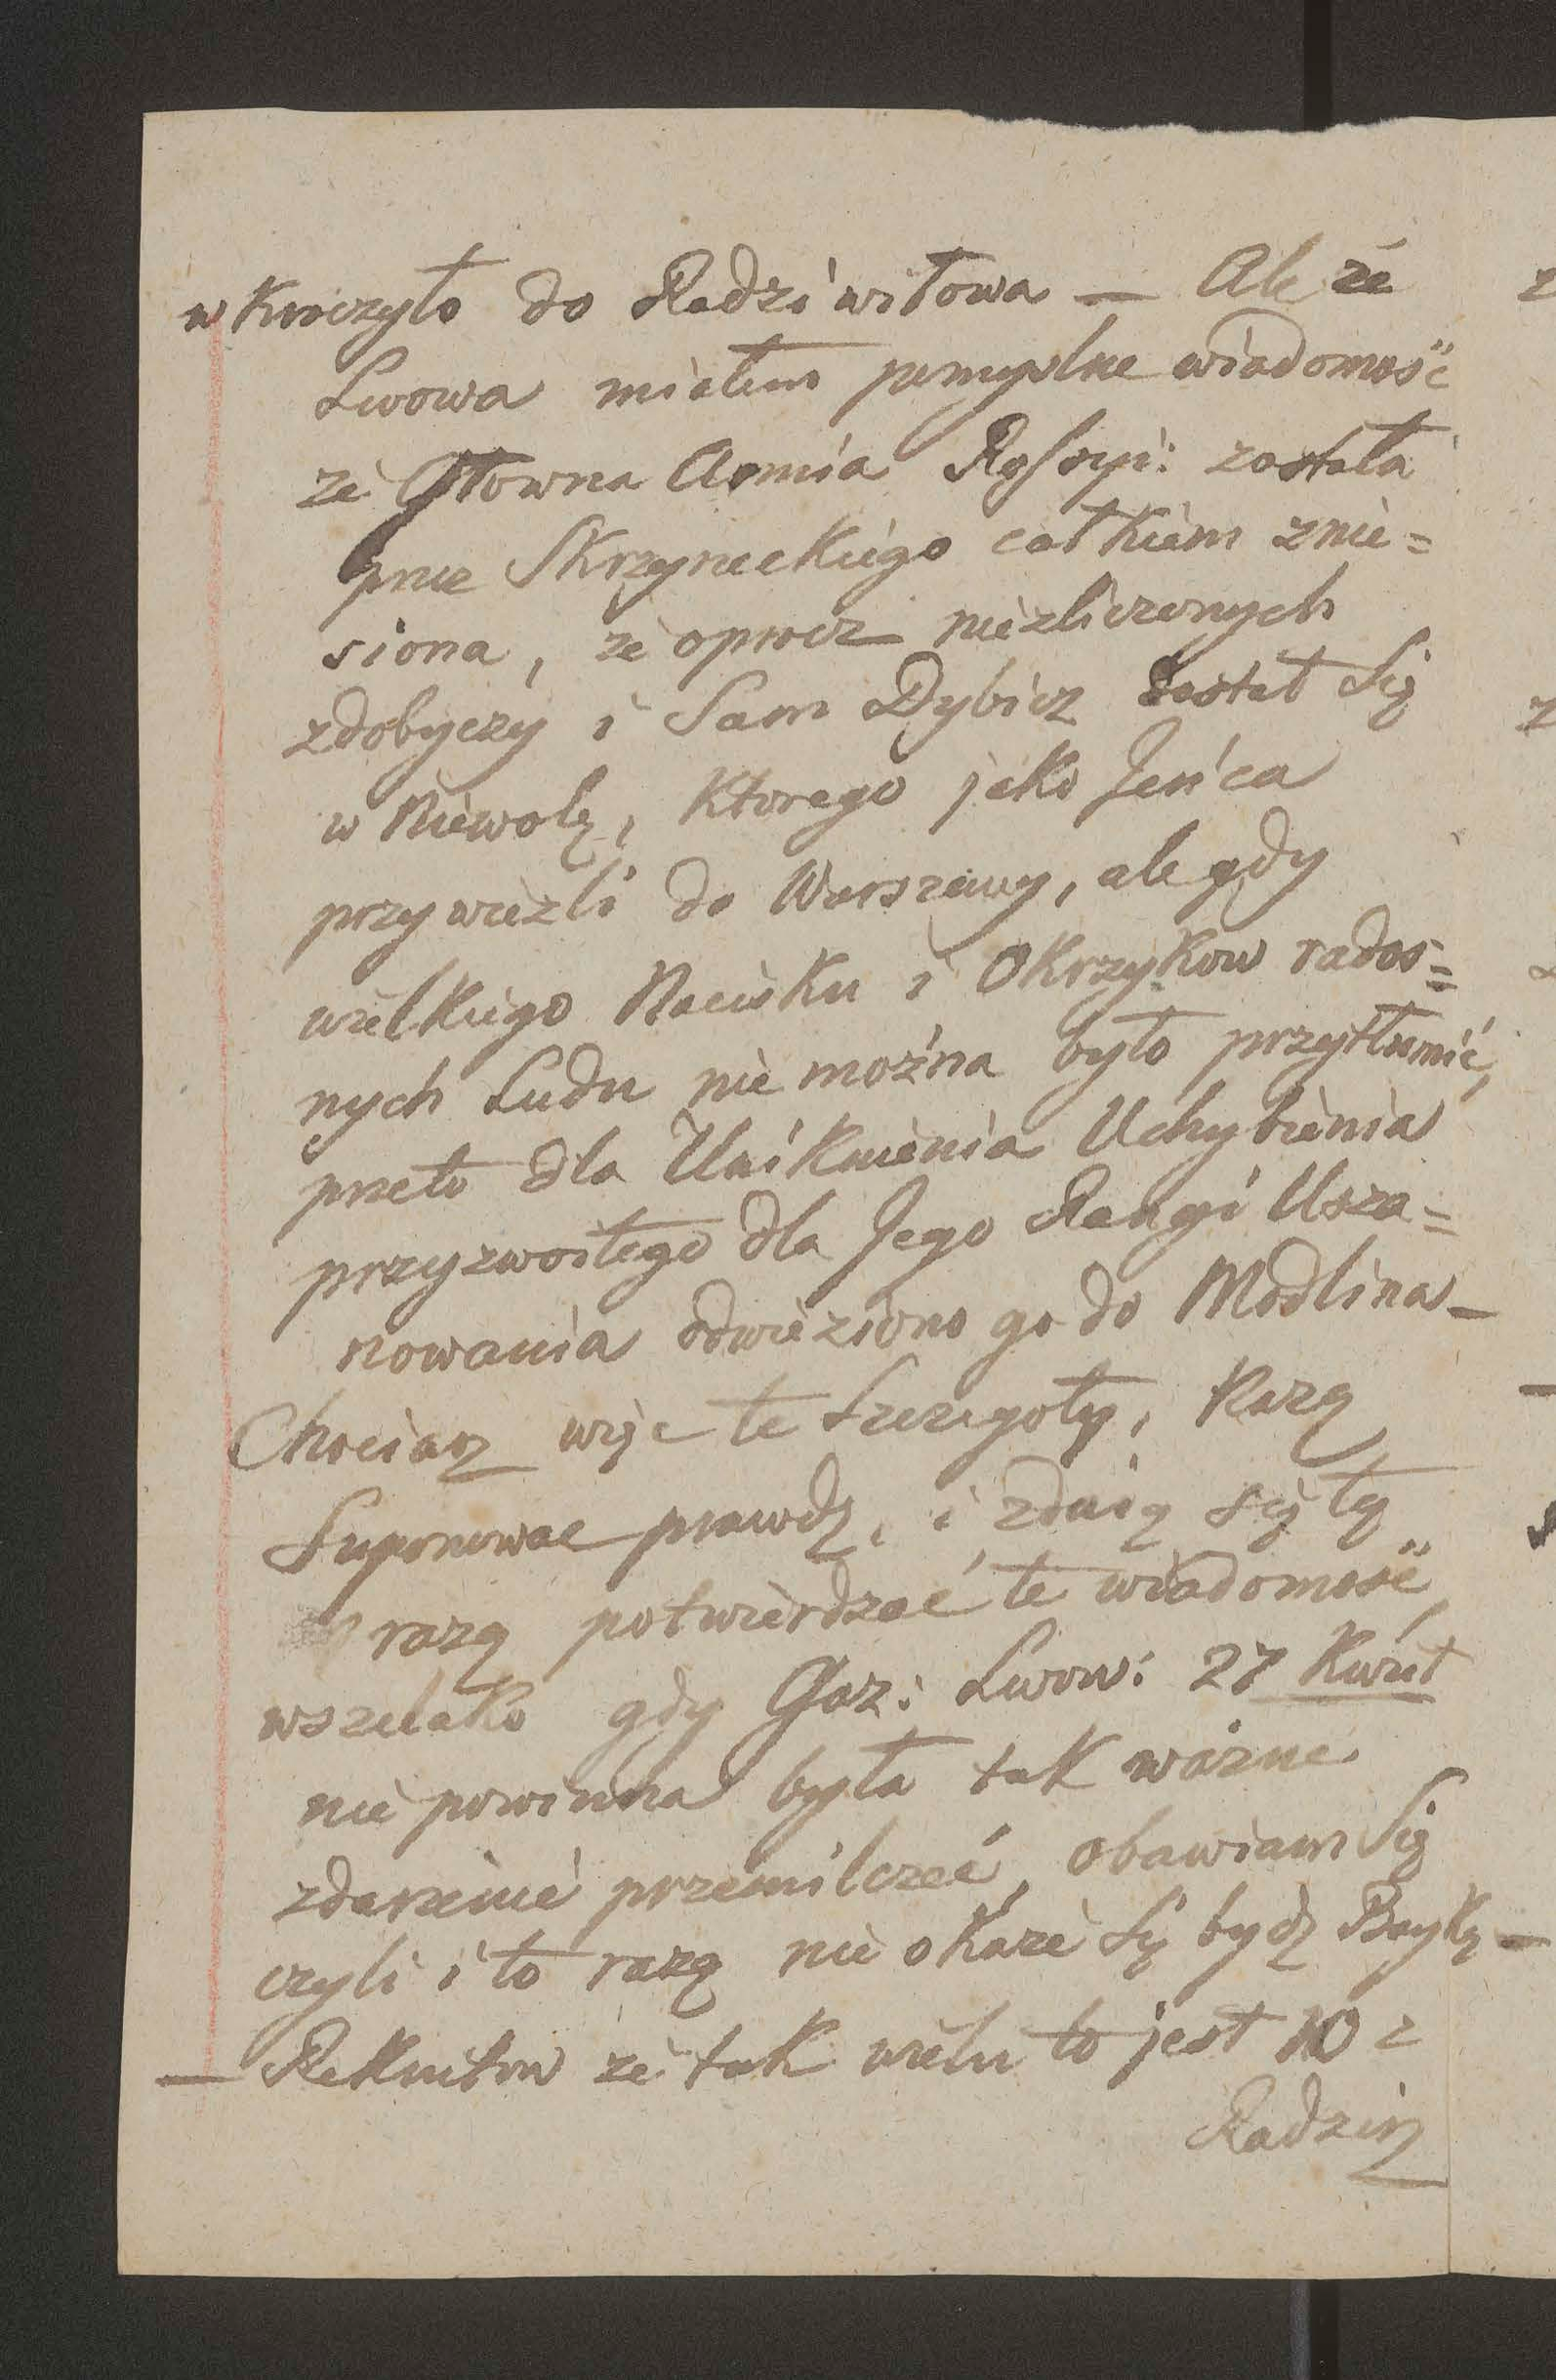 wkroczyło do Radziwiłowa — Ale ze
Lwowa miałem pomyslne wiadomość
że Głowna Armia Rossyi: została
prze Skrzyneckiego całkiem znie=
siona, że oprocz niezliczonych
zdobyczy i Sam Dybicz został Się
w Niewolę, Ktorego jako Jeńca
przywiezli do Warszawy, ale gdy
wielkiego Nacisku i Okrzykow rados=
nych Ludu nie można było przytłumić,
przeto dla Uniknienia Uchybienia
przyzwoitego dla Jego Rangi Usza=
nowania odwieziono go do Modlina —
Chociasz więc te Szczegoły, Każą
Suponowac prawdę, i zdaią się tą
razą potwierdzać te wiadomość
wszelako gdy Gaz: Lwow: 27 Kwiet
nie powinna była tak ważne
zdarzenie przemilczeć, obawiam Się
czyli i to razą nie okaże Się bydz Bayką —
— Rekrutow że tak wielu to jest 10 z
Radzin